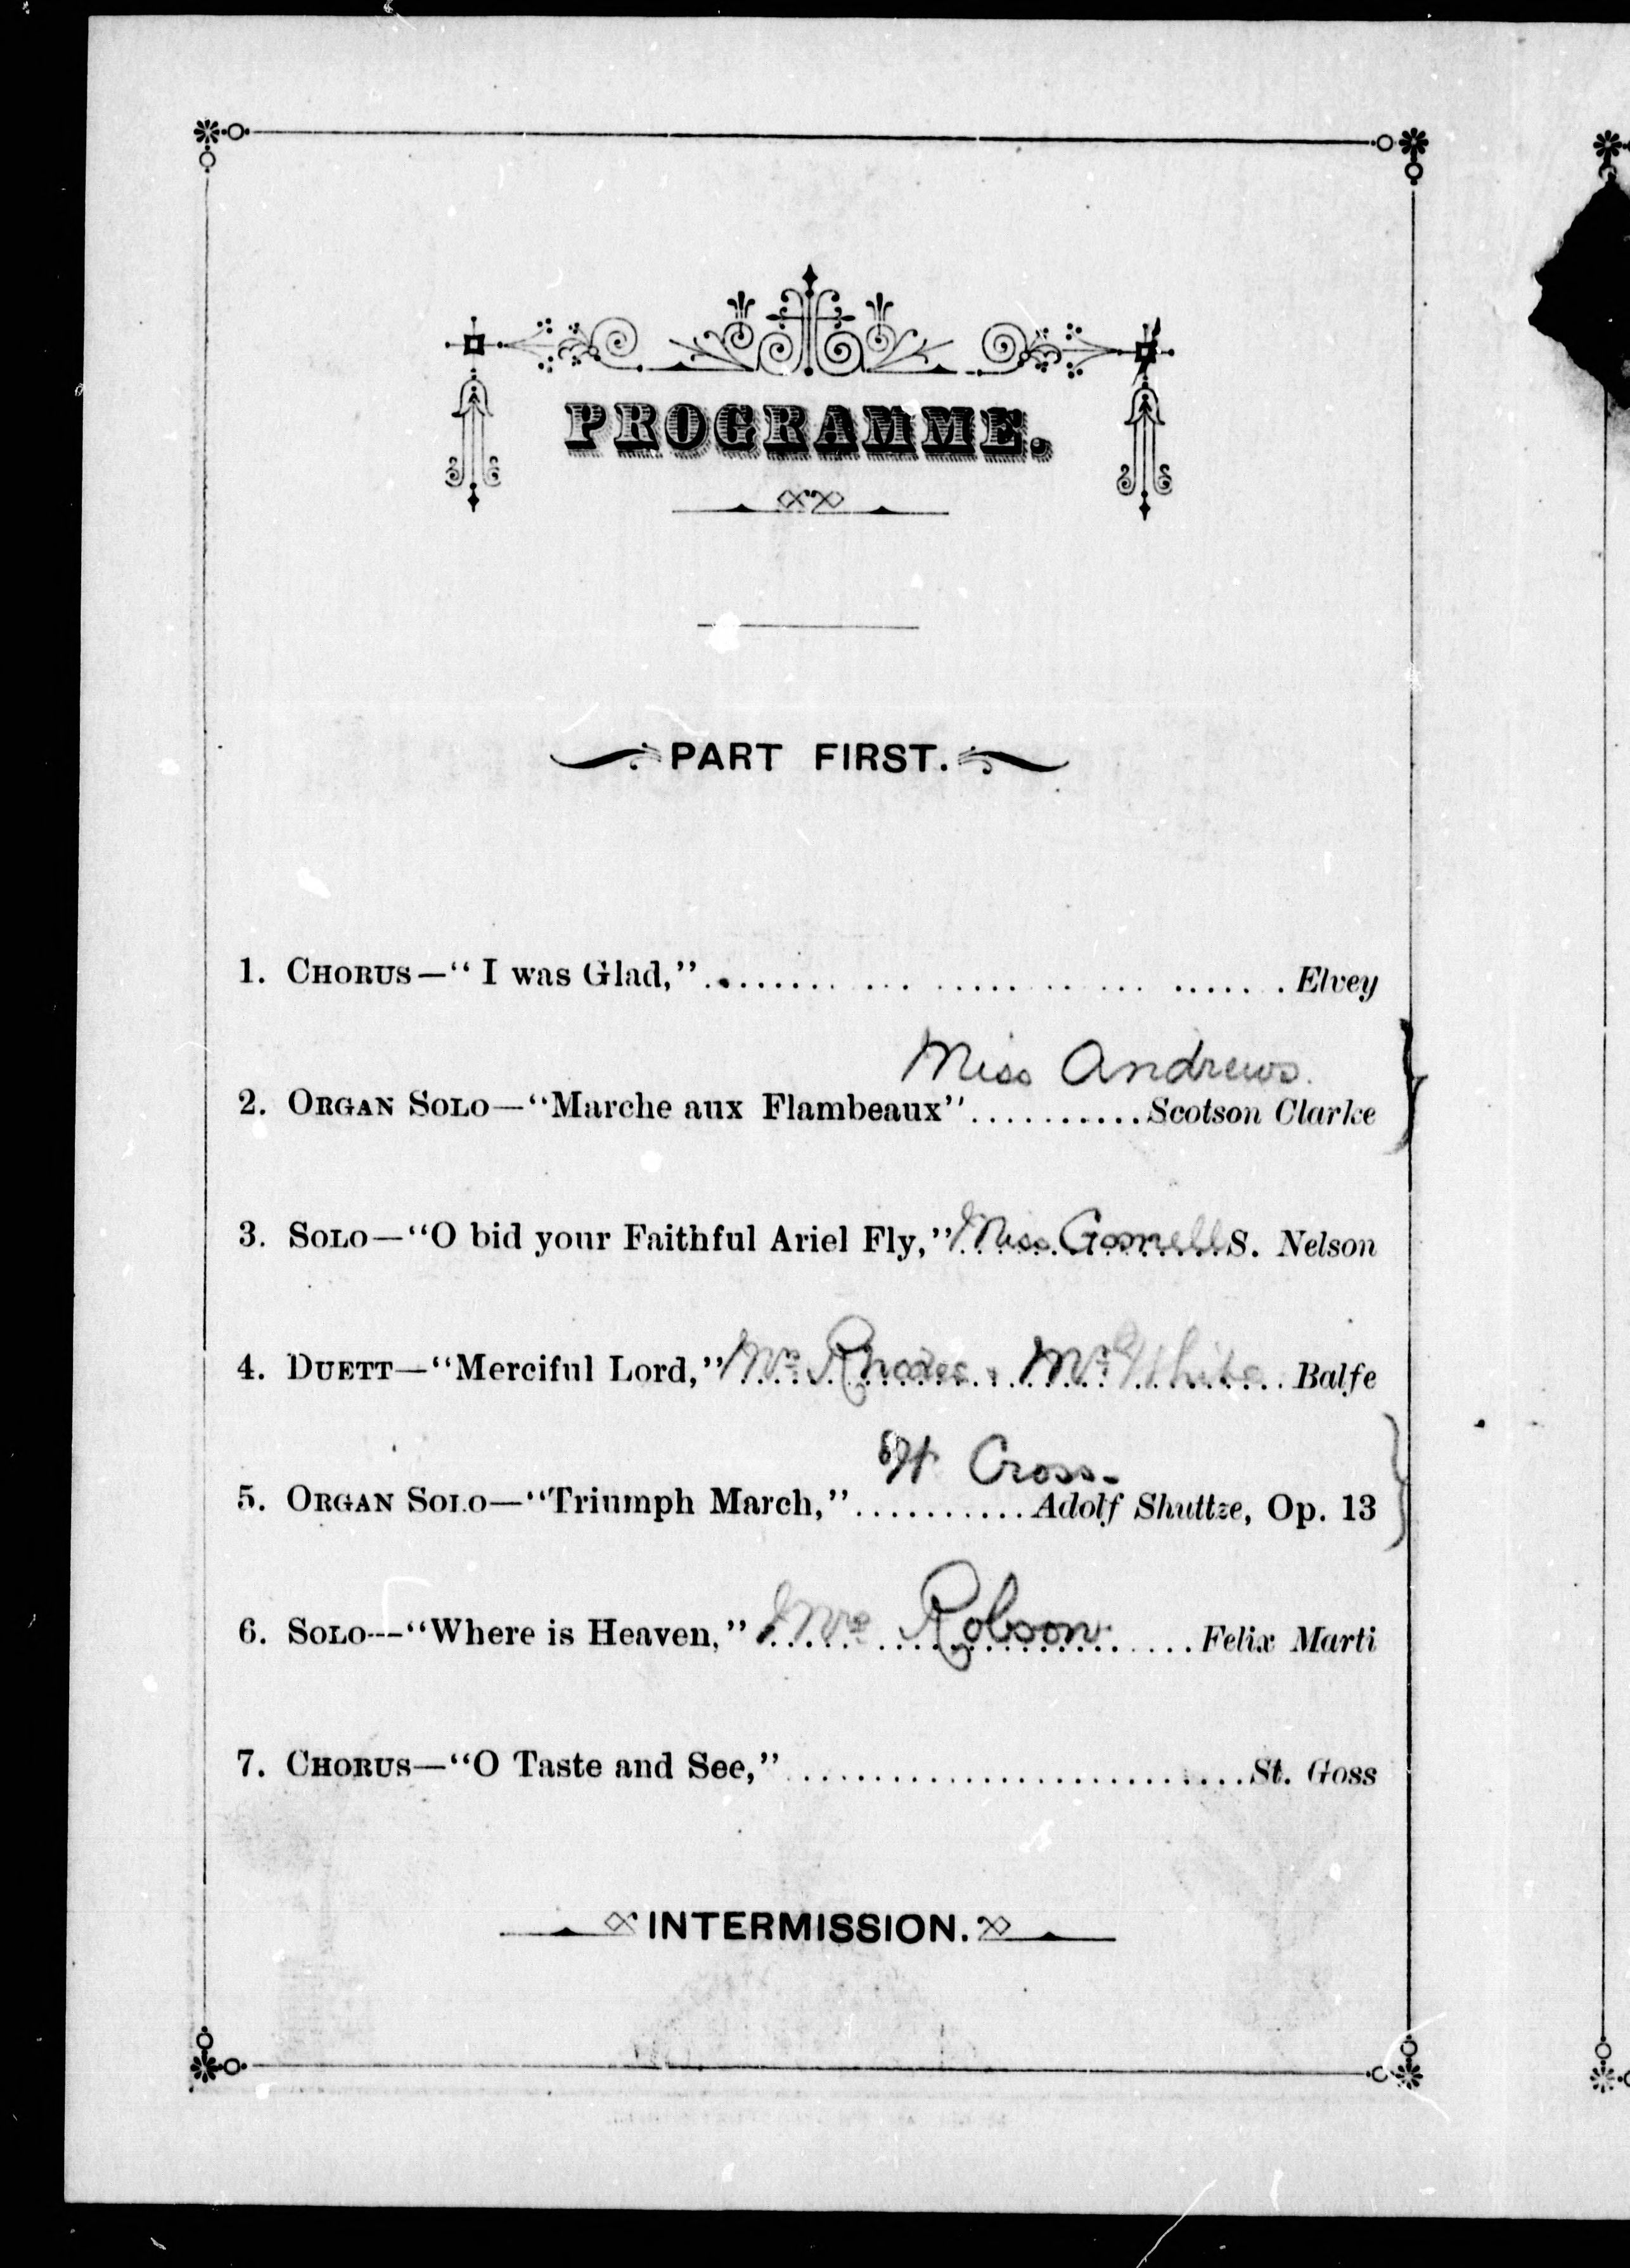 PROGRAMME.
PART FIRST.
1. CHORUS—“I was Glad,”.......... Elvey
Miss Andrews.
2. ORGAN SOLO—“Marche aux Flambeaux”..........Scotson Clarke
3. SOLO—“O bid your Faithful Ariel Fly,” Miss S. Nelson
4. DUETT—“Merciful Lord,” Mr. Rhodes & Mr. White Balfe
H Cross-
5. ORGAN SOLO—“Triumph March,”..........Adolf Shuttze, Op. 13
6. SOLO—“Where is Heaven,” Mrs Robson Felix Marti
7. CHORUS—“O Taste and See,”..........St. Goss
INTERMISSION.